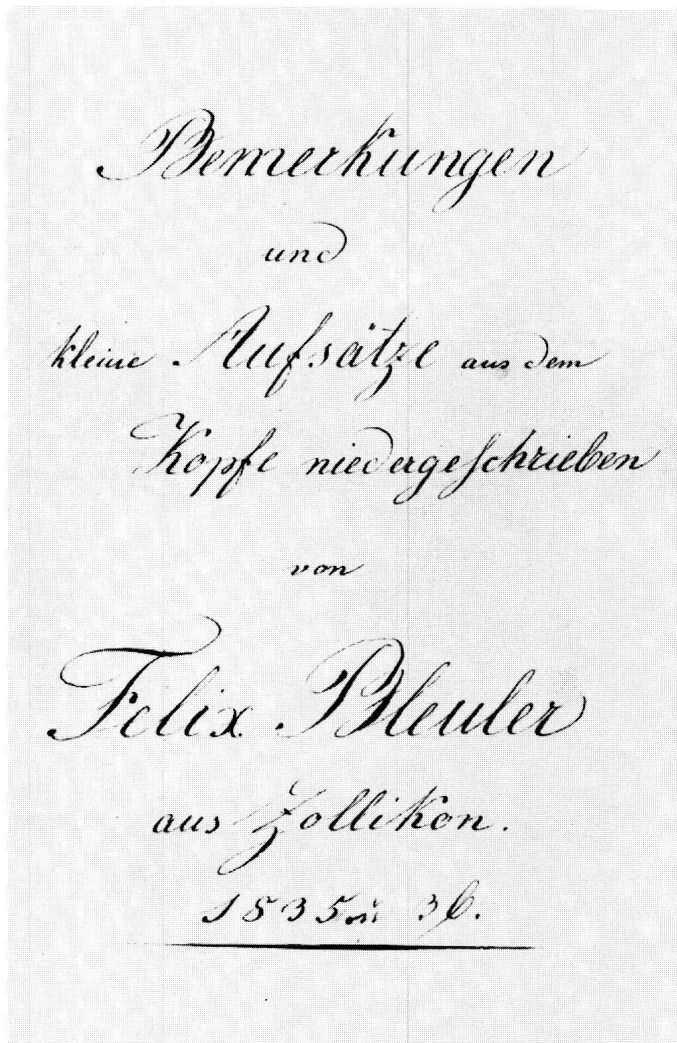 Bemerkungen
und
kleine Aufsätze aus dem
Kopfe niedergeschrieben
von
Felix Bleuler
aus Zollikon.
1835 u 36.